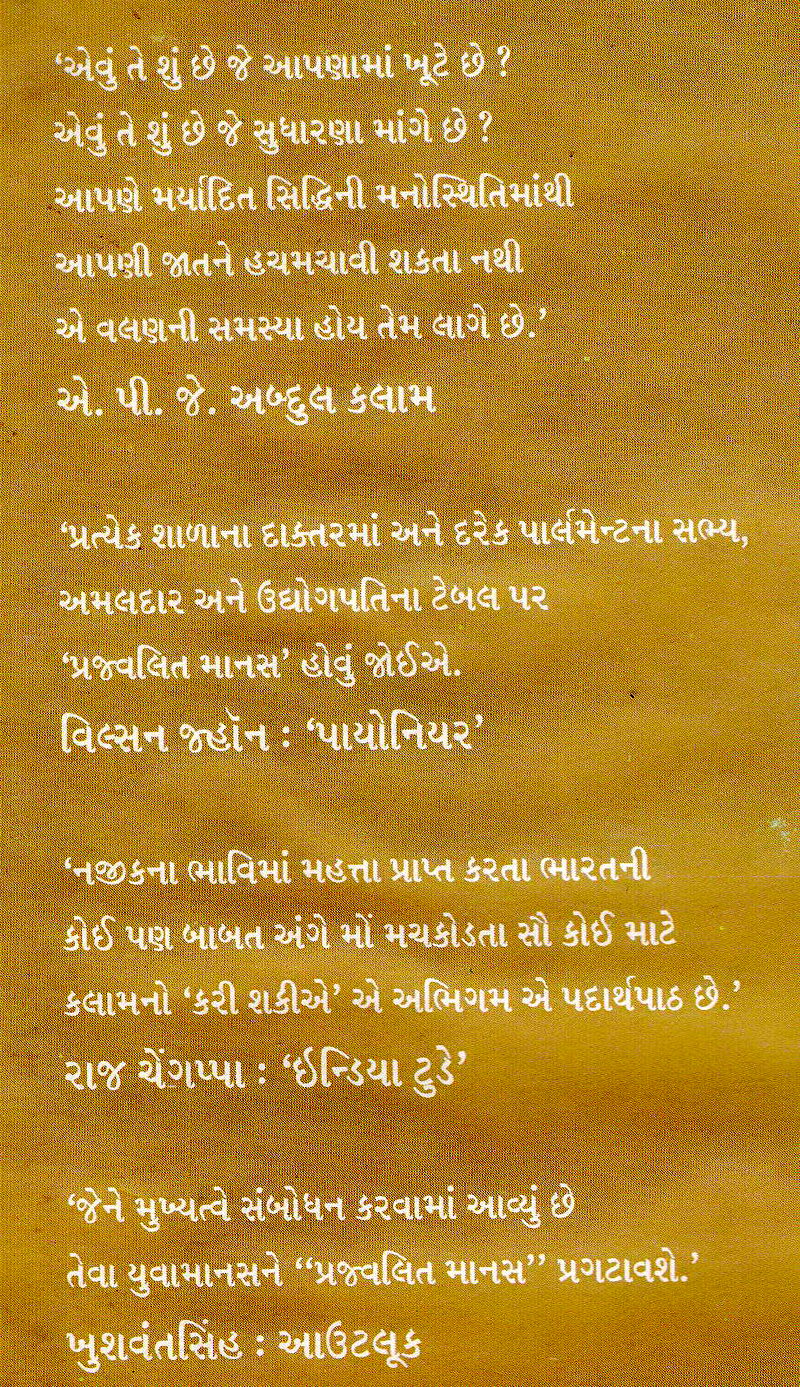 ‘એવું તે શું છે જે આપણામાં ખૂટે છે ?
એવું તે શું છે જે સુધારણા માંગે છે ?
આપણે મર્યાદિત સિદ્ધિની મનોસ્થિતિમાંથી
આપણી જાતને હચમચાવી શકતા નથી
એ વલણની સમસ્યા હોય તેમ લાગે છે.’
એ. પી. જે. અબ્દુલ કલામ
‘પ્રત્યેક શાળાના દાક્તરમાં અને દરેક પાર્લમેન્ટના સભ્ય,
અમલદાર અને ઉદ્યોગપતિના ટેબલ પર
‘પ્રજ્વલિત માનસ’ હોવું જોઈએ.
વિલ્સન જ્હૉન : ‘પાયોનિયર’
‘નજીકના ભાવિમાં મહત્તા પ્રાપ્ત કરતા ભારતની
કોઈ પણ બાબત અંગે મોં મચકોડતા સૌ કોઈ માટે
કલામનો ‘કરી શકીએ’ એ અભિગમ એ પદાર્થપાઠ છે.’
રાજ ચેંગપ્પા : ‘ઈન્ડિયા ટુડે’
‘જેને મુખ્યત્વે સંબોધન કરવામાં આવ્યું છે
તેવા યુવામાનસને “પ્રજ્વલિત માનસ” પ્રગટાવશે.’
ખુશવંતસિંહ : આઉટલૂક